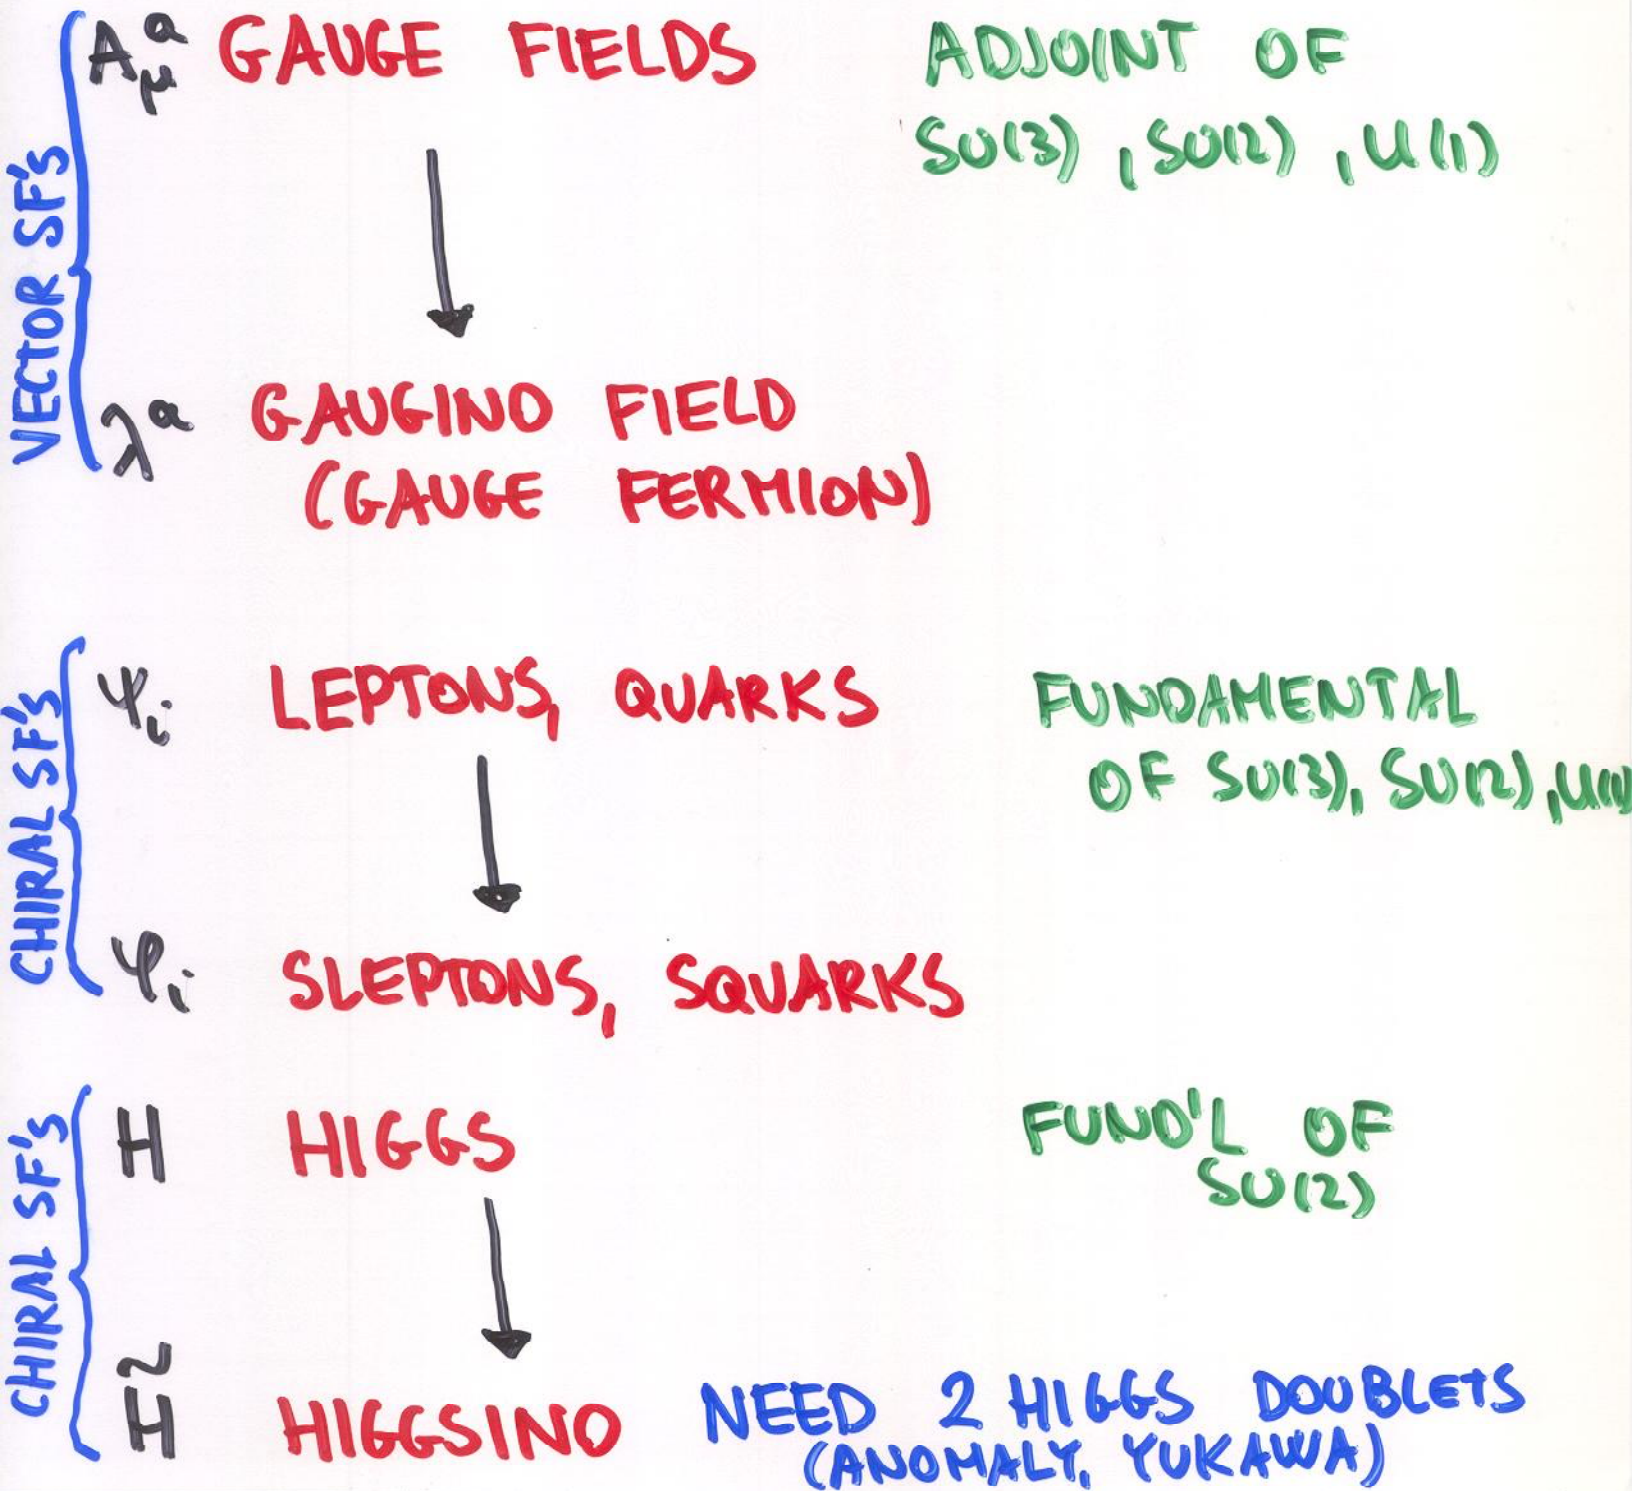 VECTOR SF'S
A^a_μ GAUGE FIELDS ADJOINT OF
SU(3), SU(2), U(1)
λ^a GAUGINO FIELD
(GAUGE FERMION)
CHIRAL SF'S
ψ_i LEPTONS, QUARKS FUNDAMENTAL
OF SU(3), SU(2), U(1)
φ_i SLEPTONS, SQUARKS
CHIRAL SF'S
H HIGGS FUND'L OF
SU(2)
H̃ HIGGSINO NEED 2 HIGGS DOUBLETS
(ANOMALY, YUKAWA)